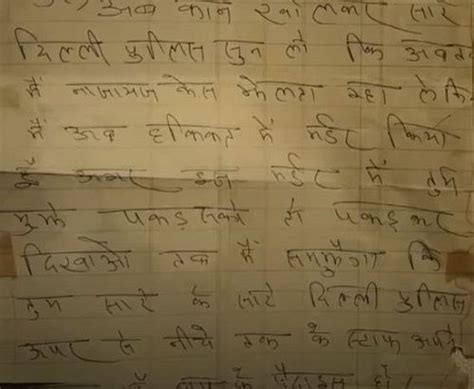 अब कान खोलकर सारे
दिल्ली पुलिस सुन लो कि अबतक
में नाजायज केस झेलता रहा लेकि
में अब हकिकत में मर्डर किया
है अगर इस मर्डर में तुम
मुझे पकड़ सको तो पकड़ कर
दिखाओ तब में समझुँगा कि
तुम सारे के सारे दिल्ली पुलिस
ऊपर से नीचे तक के स्टाफ अपने